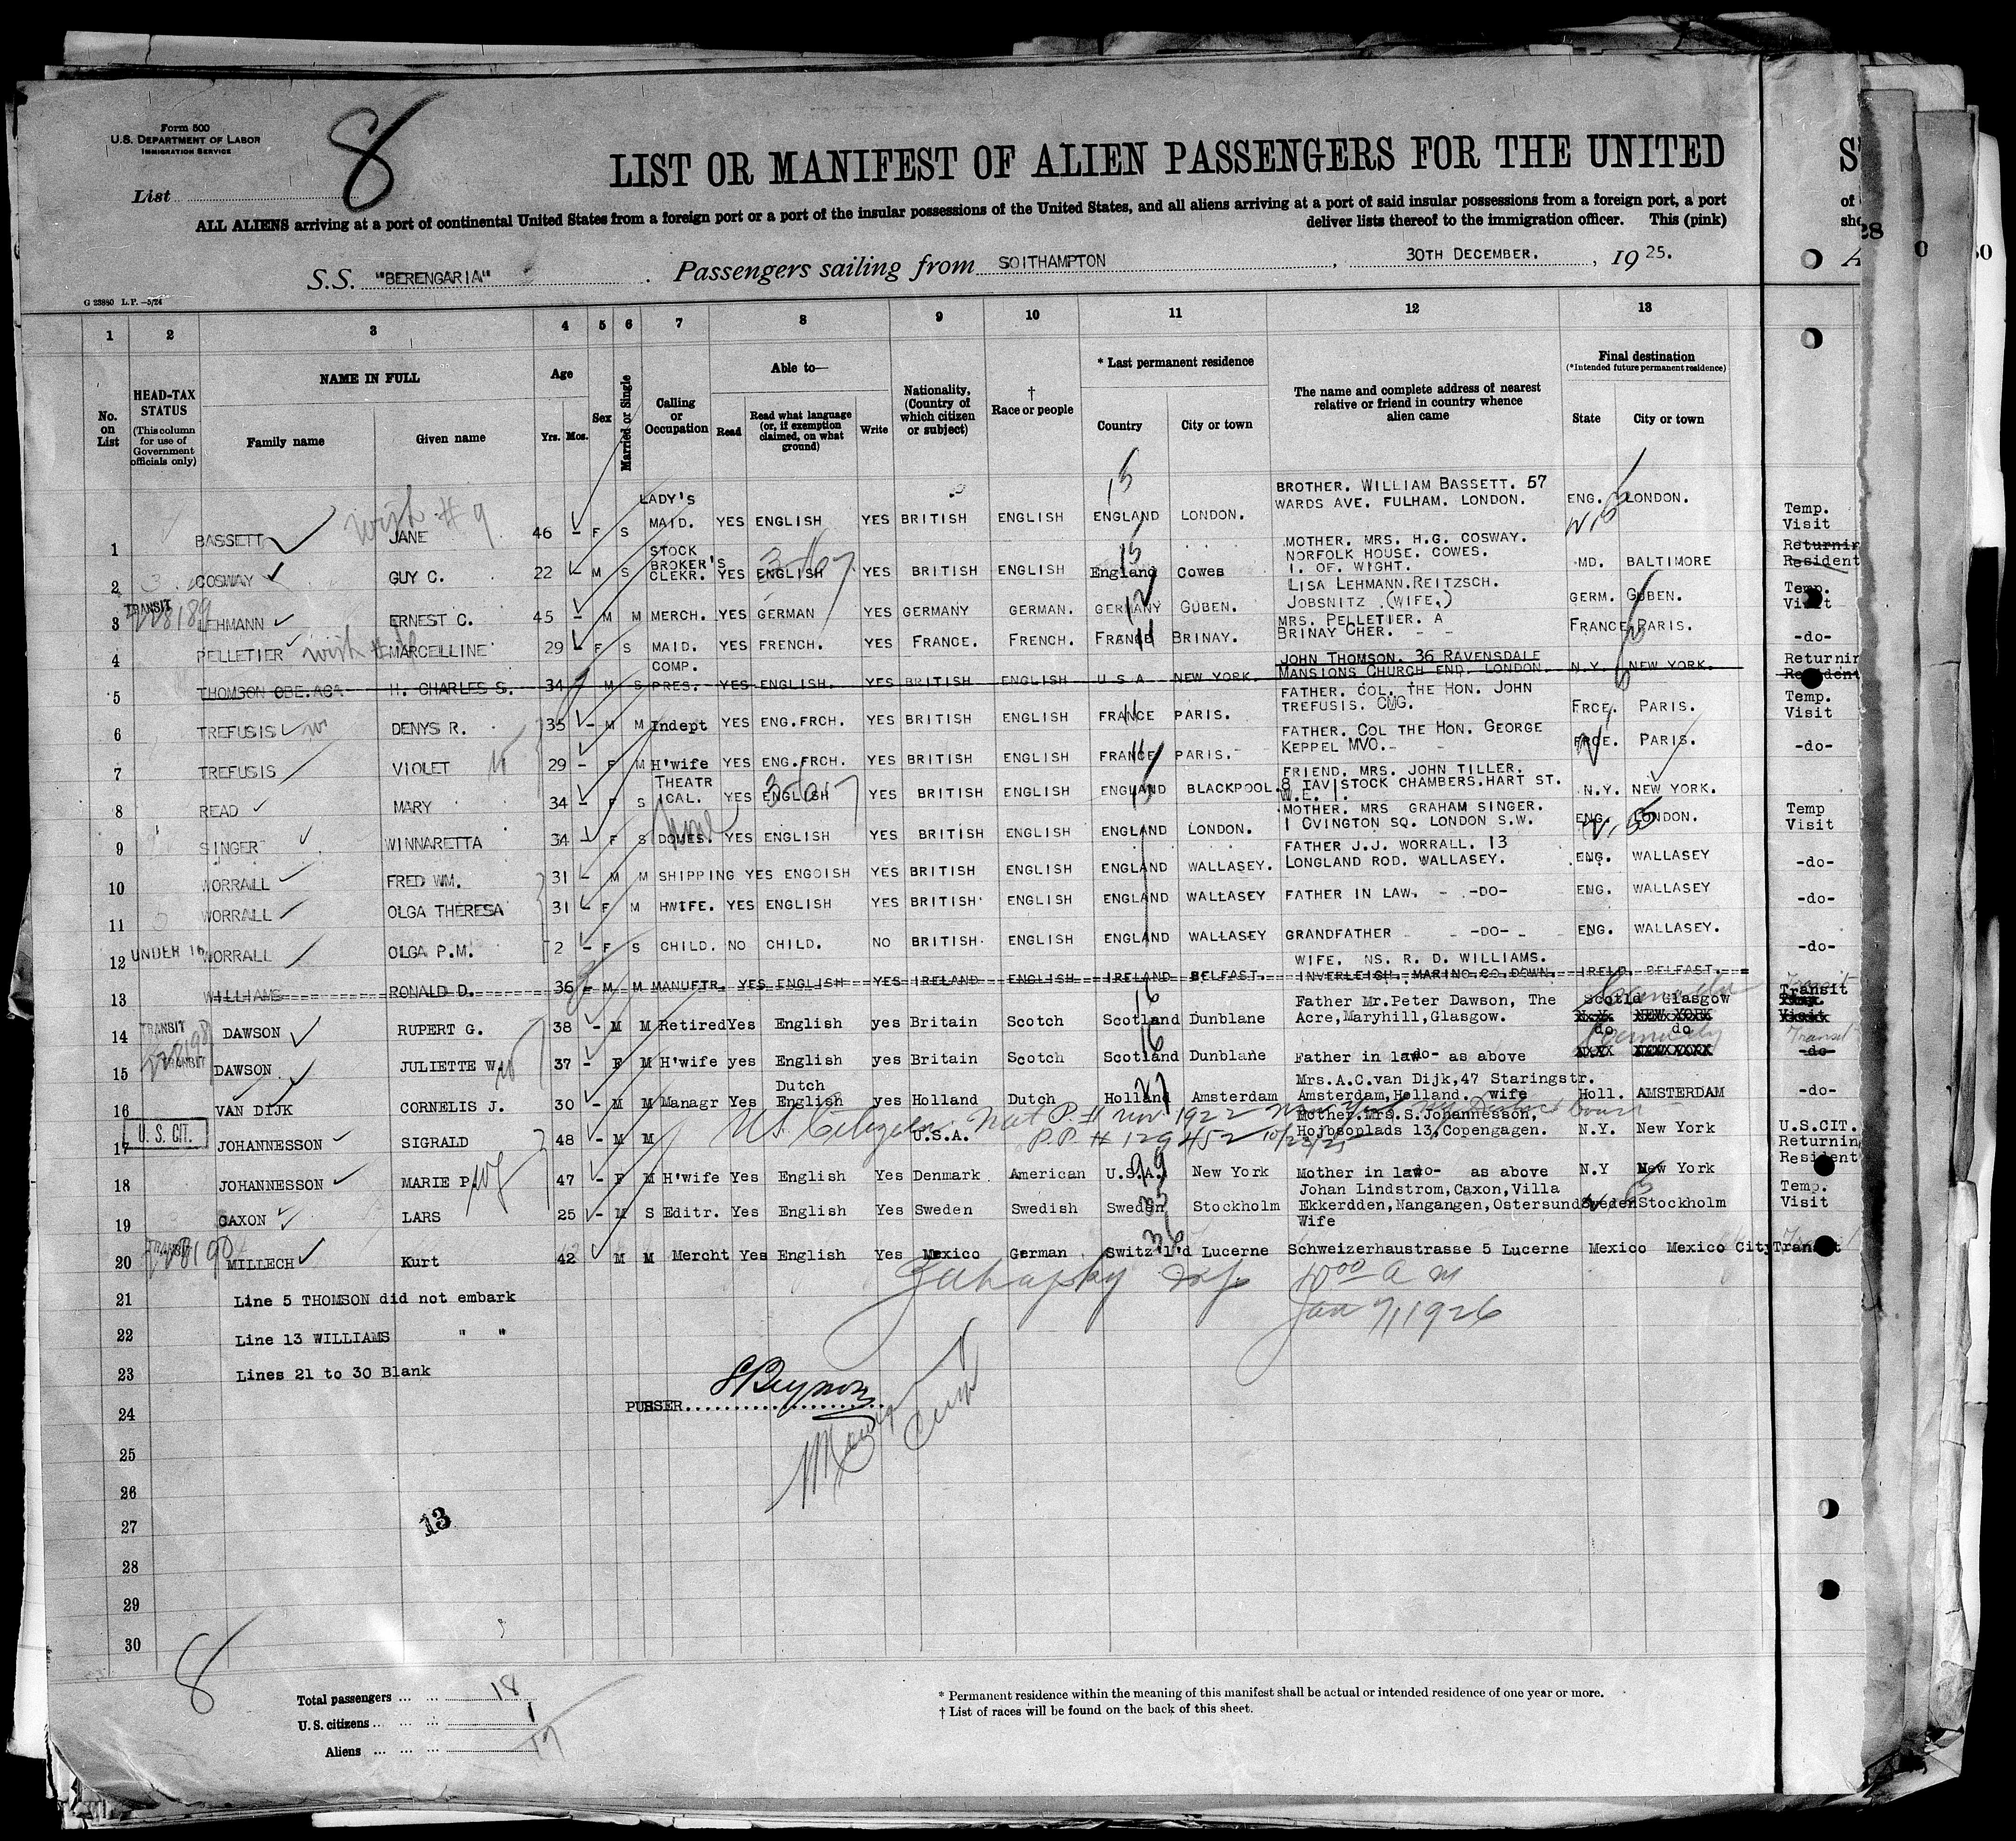 Form 500
U.S. DEPARTMENT OF LABOR
IMMIGRATION SERVICE
List 8
LIST OR MANIFEST OF ALIEN PASSENGERS FOR THE UNITED
ALL ALIENS arriving at a port of continental United States from a foreign port or a port of the insular possessions of the United States, and all aliens arriving at a port of said insular possessions from a foreign port, a port
deliver lists thereof to the immigration officer. This (pink)
S.S. "BERENGARIA" Passengers sailing from SOITHAMPTON, 30TH DECEMBER. , 1925.
G 23880 L.P.—5/24
1 2 3 4 5 6 7 8 9 10 11 12 13
No. on List
HEAD-TAX STATUS
(This column for use of Government officials only)
NAME IN FULL
Family name Given name
Age
Yrs. Mos.
Sex
Married or Single
Calling or Occupation
Able to—
Read Read what language (or, if exemption claimed, on what ground) Write
Nationality, (Country of which citizen or subject)
† Race or people
* Last permanent residence
Country City or town
The name and complete address of nearest relative or friend in country whence alien came
Final destination
(*Intended future permanent residence)
State City or town
1 BASSETT JANE with #9 46 - F S LADY'S MAID. YES ENGLISH YES BRITISH ENGLISH ENGLAND LONDON. BROTHER. WILLIAM BASSETT. 57 WARDS AVE. FULHAM. LONDON. ENG. LONDON. Temp. Visit
2 COSWAY GUY C. 22 - M S STOCK BROKER'S CLEKR. YES ENGLISH YES BRITISH ENGLISH England Cowes MOTHER. MRS. H.G. COSWAY. NORFOLK HOUSE. COWES. I. OF. WIGHT. MD. BALTIMORE Returnin Resident
3 TRANSIT LEHMANN ERNEST C. 45 - M M MERCH. YES GERMAN YES GERMANY GERMAN. GERMANY GUBEN. LISA LEHMANN.REITZSCH. JOBSNITZ .(WIFE.) GERM. GUBEN. Temp. Visit
4 PELLETIER MARCELLINE 29 - F S MAID. YES FRENCH. YES FRANCE. FRENCH. FRANCE BRINAY. MRS. PELLETIER. A BRINAY CHER. - - FRANCE PARIS. -do-
5 THOMSON OBE.ACA H. CHARLES S. 34 M S COMP. PRES. YES ENGLISH. YES BRITISH ENGLISH U S A NEW YORK. JOHN THOMSON. 36 RAVENSDALE MANSIONS CHURCH END. LONDON. N.Y. NEW YORK. Returnin Resident
6 TREFUSIS DENYS R. 35 - M M Indept YES ENG.FRCH. YES BRITISH ENGLISH FRANCE PARIS. FATHER. COL. THE HON. JOHN TREFUSIS. CMG. FRCE. PARIS. Temp. Visit
7 TREFUSIS VIOLET 29 - F M H'wife YES ENG.FRCH. YES BRITISH ENGLISH FRANCE PARIS. FATHER. COL THE HON. GEORGE KEPPEL MVO. FRCE. PARIS. -do-
8 READ MARY 34 - F S THEATR ICAL. YES ENGLISH YES BRITISH ENGLISH ENGLAND BLACKPOOL. FRIEND. MRS. JOHN TILLER. 8 TAVISTOCK CHAMBERS.HART ST. W.E. 1. N.Y. NEW YORK.
9 SINGER WINNARETTA 34 - F S DOMES. YES ENGLISH YES BRITISH ENGLISH ENGLAND LONDON. MOTHER. MRS GRAHAM SINGER. 1 OVINGTON SQ. LONDON S.W. ENG. LONDON. Temp Visit
10 WORRALL FRED WM. 31 - M M SHIPPING YES ENGOISH YES BRITISH ENGLISH ENGLAND WALLASEY. FATHER J.J. WORRALL. 13 LONGLAND ROD. WALLASEY. ENG. WALLASEY -do-
11 WORRALL OLGA THERESA 31 - F M HWIFE. YES ENGLISH YES BRITISH ENGLISH ENGLAND WALLASEY FATHER IN LAW. - -DO- ENG. WALLASEY -do-
12 UNDER 16 WORRALL OLGA P.M. 2 - F S CHILD. NO CHILD. NO BRITISH ENGLISH ENGLAND WALLASEY GRANDFATHER -DO- ENG. WALLASEY. -do-
13 WILLIAMS RONALD D. 36 - M M MANUFTR. YES ENGLISH YES IRELAND ENGLISH IRELAND BELFAST. WIFE. NS. R. D. WILLIAMS. INVERLEIGH. MARINO.CO.DOWN. IRELD. BELFAST.
14 TRANSIT DAWSON RUPERT G. 38 - M M Retired Yes English yes Britain Scotch Scotland Dunblane Father Mr.Peter Dawson, The Acre, Maryhill, Glasgow. Scotld Glasgow N.Y. NEW YORK Canada Transit
15 TRANSIT DAWSON JULIETTE W. 37 - F M H'wife yes English yes Britain Scotch Scotland Dunblane Father in law -do- as above do do Transit -do-
16 VAN DIJK CORNELIS J. 30 - M M Managr Yes Dutch English yes Holland Dutch Holland Amsterdam Mrs.A.C.van Dijk,47 Staringstr. Amsterdam,Holland. wife Holl. AMSTERDAM -do-
17 U. S. CIT. JOHANNESSON SIGRALD 48 - M M US Citizen U.S.A. P.P. # 129452 Mother.Mrs.S.Johannesson, Hojbsoplads 13,Copengagen. N.Y. New York U.S.CIT. Returning Resident
18 JOHANNESSON MARIE P. 47 - F M H'wife Yes English Yes Denmark American U.S.A. New York Mother in law -do- as above N.Y New York
19 CAXON LARS 25 - M S Editr. Yes English Yes Sweden Swedish Sweden Stockholm Johan Lindstrom,Caxon,Villa Ekkerdden,Nangangen,Ostersund Sweden Stockholm Temp. Visit
20 TRANSIT MILLECH Kurt 42 M M Mercht Yes English Yes Mexico German Switz'l'd Lucerne Wife Schweizerhaustrasse 5 Lucerne Mexico Mexico City Transit
21 Line 5 THOMSON did not embark
10 00 A M
Jan 7, 1926
22 Line 13 WILLIAMS " "
23 Lines 21 to 30 Blank
24 PURSER
25
26
27 13
28
29
30
8
Total passengers ... ... 18
U.S. citizens ... ... 1
Aliens ... ... ... 17
* Permanent residence within the meaning of this manifest shall be actual or intended residence of one year or more.
† List of races will be found on the back of this sheet.